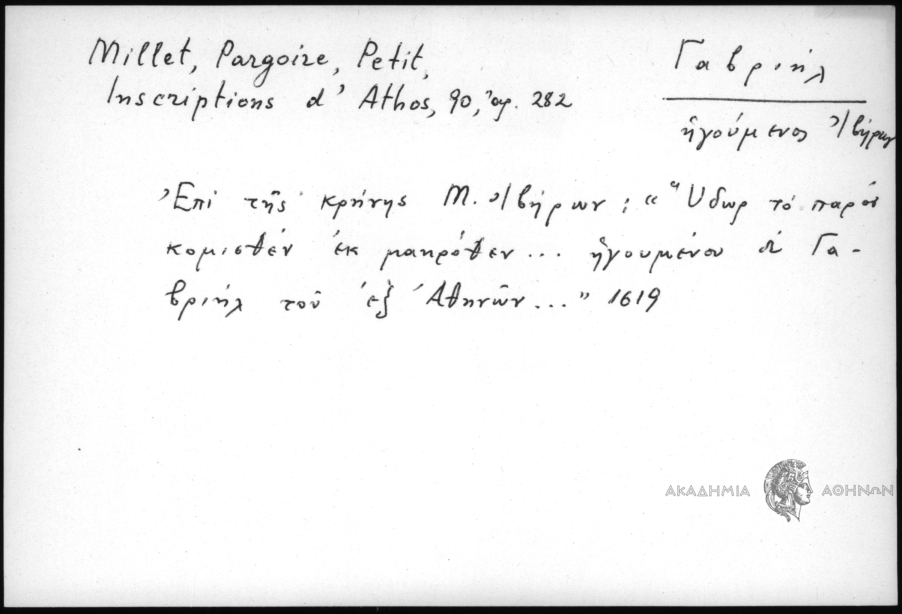 Millet, Pargoire, Petit,
Inscriptions d' Athos, 90, ἀρ. 282
Γαβριήλ
ἡγούμενος Ἰβήρων
Ἐπὶ τῆς κρήνης Μ. Ἰβήρων : « Ὕδωρ τὸ παρὸν
κομισθέν ἐκ μακρόθεν ... ἡγουμένου δὲ Γα-
βριήλ τοῦ ἐξ Ἀθηνῶν ... » 1619
ΑΚΑΔΗΜΙΑ ΑΘΗΝΩΝ